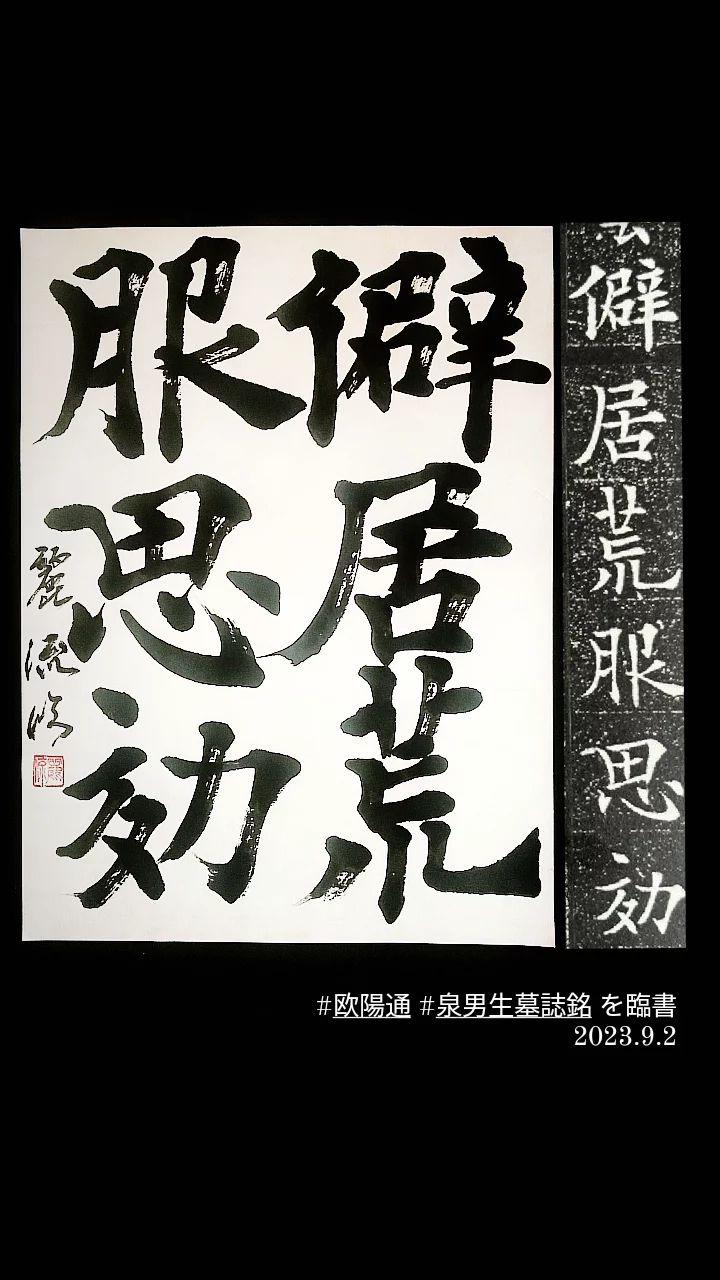 僻居荒
服思効
麗流臨
僻居荒服思効
#欧陽通 #泉男生墓誌銘 を臨書
2023.9.2